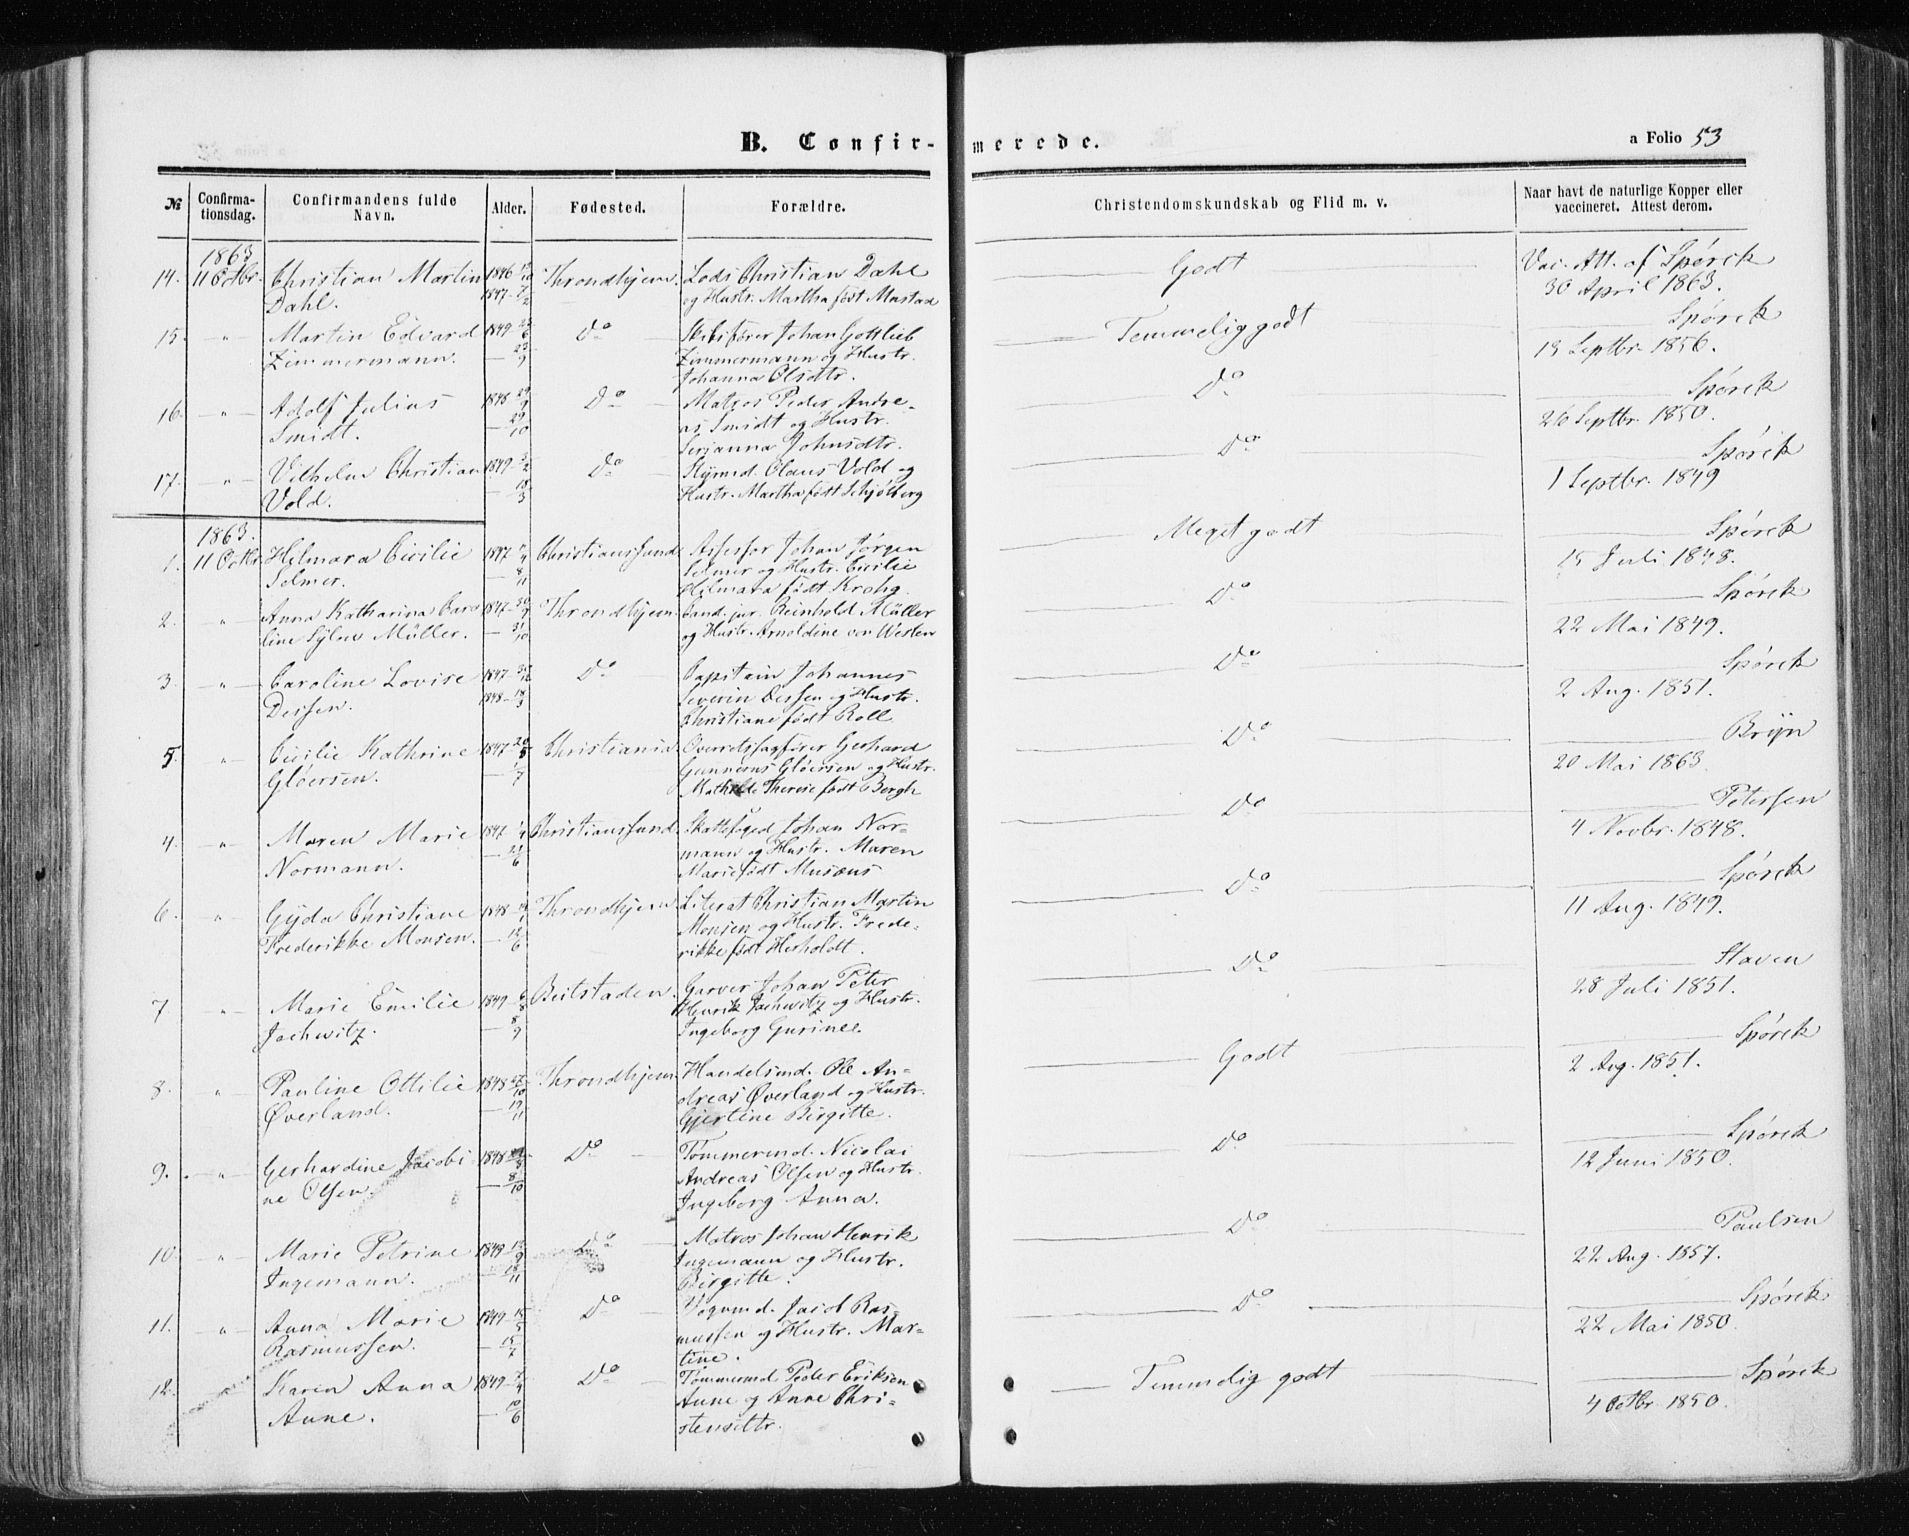 B. Confir-
merede.
a Folio 53
№
Confirma-
tionsdag.
Confirmandens fulde
Navn.
Alder.
Fødested.
Forældre.
Christendomskundskab og Flid m. v.
Naar havt de naturlige Kopper eller
vaccineret. Attest derom.
1863
14. 11 Octbr. Christian Martin 1846 Throndhjem. Lods Christian Dahl Godt Vac. Att. af Spørck
Dahl. 1847 og Hustr. Martha født Mustad 30 April 1863.
15. " Martin Edvard 1849 Do Skibsfører Johan Gottlieb Temmelig godt Spørck
Zimmermann. Zimmermann og Hustr. 19 Septbr. 1856.
Johanna Olsdtr.
16. " Adolf Julius 1848 Do Matros Peder Andre- Do Spørck
Smidt. as Smidt og Hustr. 26 Septbr. 1850.
Serianna Johnsdtr.
17. " Vilhelm Christian 1849 Do Styrmd. Claus Vold og Do Spørck
Vold. Hustr. Martha født Schjølberg 1 Septbr. 1849
1863.
1. 11 Octbr. Hilmara Cicilie 1847 Christianssund Assessor Johan Jörgen Meget godt Spørck
Selmer. Selmer og Hustr. Cicilie 15 Juli 1848.
Hilmara født Krohg.
2. " Anna Katharina Caro 1847 Throndhjem. Cand. jur. Reinhold Müller Do Spørck
line Sylow Müller. og Hustr. Arnoldine von Westen 22 Mai 1849.
3. " Caroline Lovise 1847 Do Capitain Johannes Do Spørck
Dessen. 1848 Severin Dessen og Hustr. 2 Aug. 1851.
Christiane født Roll
5. " Cicilie Kathrine 1847 Christiania. Overretssagfører Gerhard Do Bryn
Gløersen. Gunnerus Gløersen og Hustr. 20 Mai 1863.
Mathilde Therese født Bergh
4. " Maren Marie 1847 Christianssund. Skattefoged Johan Nor- Do Petersen
Normann. mann og Hustr. Maren 4 Novbr. 1848.
Marie født Musæus
6. " Gyda Christiane 1848 Throndhjem Literat Christian Martin Do Spørck
Frederikke Monsen. Monsen og Hustr. Frede- 11 Aug. 1849.
rikke født Herholdt.
7. " Marie Emilie 1849 Beitstaden. Garver Johan Peter Do Staven
Jachwitz. Henrik Jachwitz og Hustr. 28 Juli 1851.
Ingeborg Gurine.
8. " Pauline Ottilie 1848 Throndhjem. Handelsmd. Ole An- Godt Spørck
Øverland. dreas Øverland og Hustr. 2 Aug. 1851.
Gjertine Birgitte.
9. " Gerhardine Jacobi 1848 Do Tømmermd. Nicolai Do Spørck
ne Olsen. Andreas Olsen og Hustr. 12 Juni 1850.
Ingeborg Anna.
10. " Marie Petrine 1849 Do Matros Johan Henrik Do Paulsen
Ingemann. Ingemann og Hustr. 22 Aug. 1857.
Birgitte.
11. " Anna Marie 1849 Do Vognmd. Jacob Ras- Do Spørck
Rasmussen. mussen og Hustr. Mar- 22 Mai 1850.
tine.
12. " Karen Anna 1849 Do Tømmermd Peder Eriksen Temmelig godt Spørck
Aune. Aune og Anne Chri- 4 Octbr. 1850.
stensdtr.